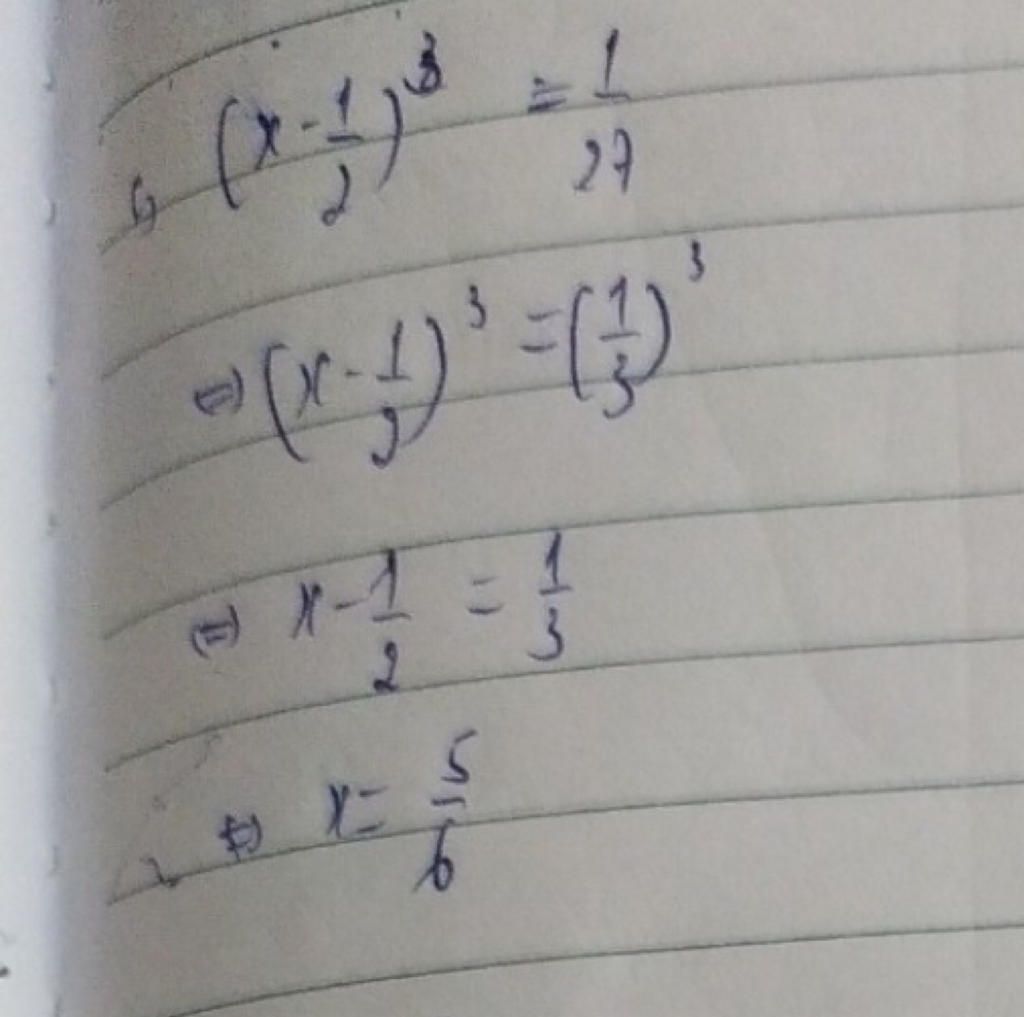 c, (x - 1/2)³ = 1/27
⇔ (x - 1/2)³ = (1/3)³
⇔ x - 1/2 = 1/3
⇔ x = 5/6